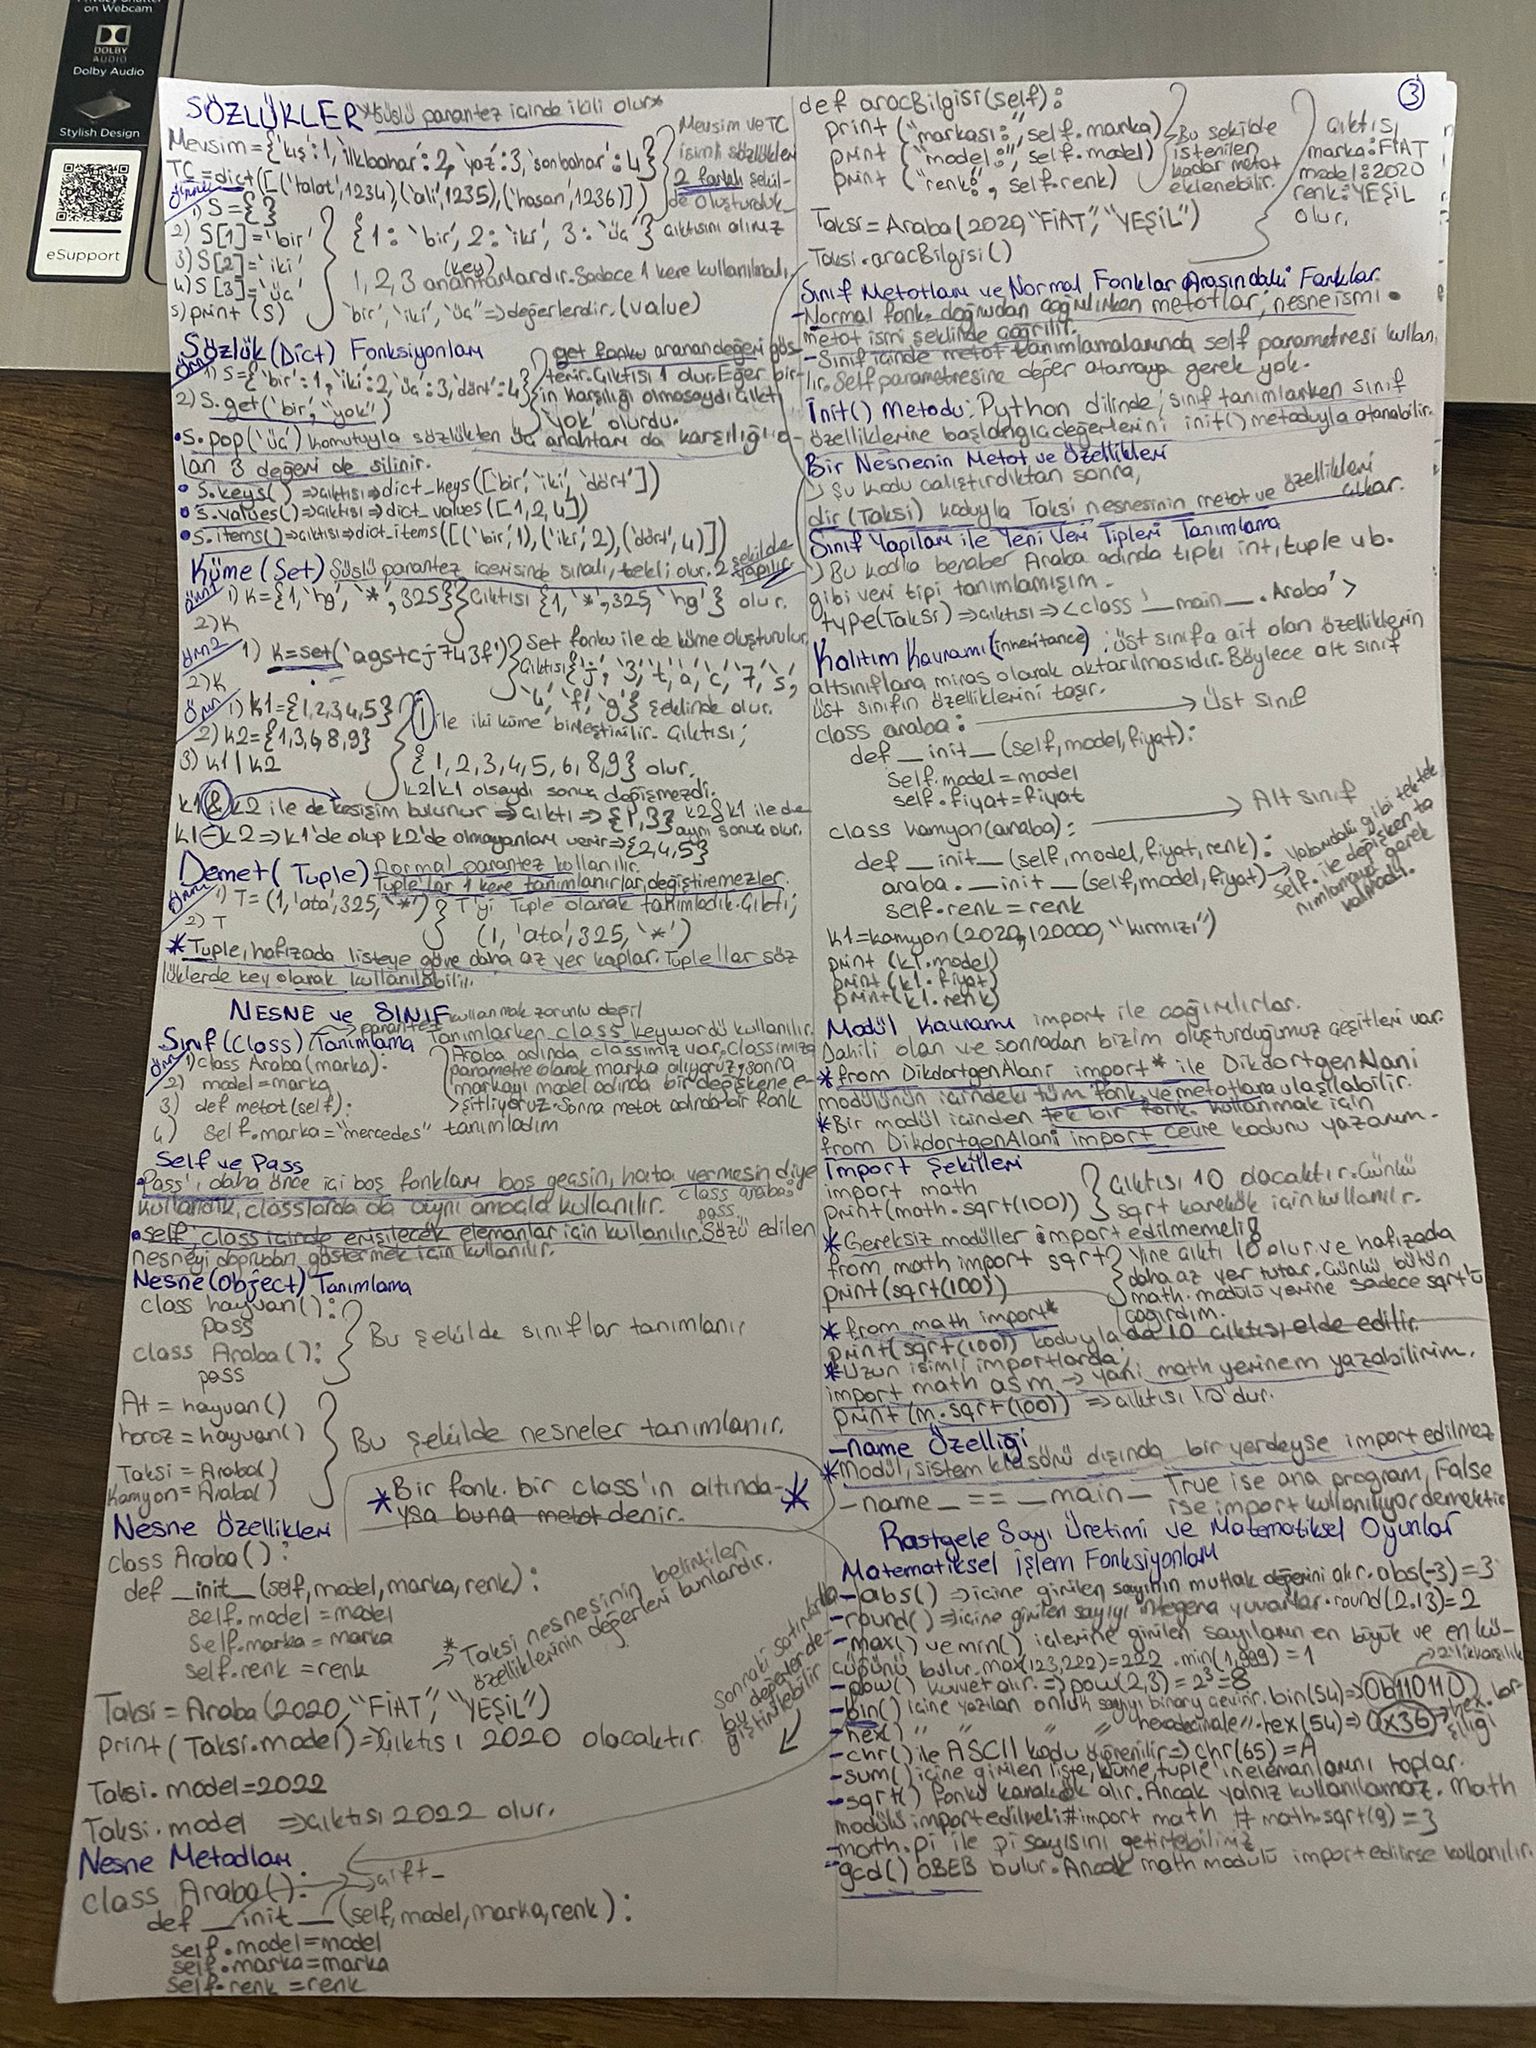 on Webcam
DOLBY
AUDIO
Dolby Audio
Stylish Design
eSupport
SÖZLÜKLER *Süslü parantez içinde ikili olur*
Mevsim={'kış':1,'ilkbahar':2,'yaz':3,'sonbahar':4}
TC=dict([('talat',1234),('ali',1235),('hasan',1236)])
Mevsim ve TC
isimli sözlükleri
2 farklı şekil-
de oluşturduk.
Örnek
1) S={ }
2) S[1]='bir'
3) S[2]='iki'
4) S[3]='üç'
5) print (S)
{1:'bir', 2:'iki', 3:'üç'} çıktısını alırız
(key)
1, 2, 3 anahtarlardır. Sadece 1 kere kullanılmalı.
'bir','iki','üç' => değerlerdir. (value)
Sözlük (Dict) Fonksiyonları
Örn
1) S={'bir':1,'iki':2,'üç':3,'dört':4}
2) S.get('bir',"yok")
get fonku aranan değeri gös-
terir. Çıktısı 1 olur. Eğer bir'
in karşılığı olmasaydı çıktı
'yok' olurdu.
• S.pop('üç') komutuyla sözlükten üç anahtarı da karşılığı o-
lan 3 değeri de silinir.
• S.keys() => çıktısı => dict_keys(['bir','iki','dört'])
• S.values() => çıktısı => dict_values([1,2,4])
• S.items() => çıktısı => dict_items([('bir',1),('iki',2),('dört',4)])
Küme (Set) Süslü parantez içerisinde sıralı, tekli olur. 2 şekilde yapılır.
Örn1 1) K={1,'hg','*',325} Çıktısı {1,'*',325,'hg'} olur.
2) K
Örn2 1) K=set('agstcj743f')
2) K
Set fonku ile de küme oluşturulur
Çıktısı {'j','3','t','a','c','7','s',
'4','f','g'} şeklinde olur.
Örn 1) K1={1,2,3,4,5}
2) K2={1,3,6,8,9}
3) K1|K2
| ile iki küme birleştirilir. Çıktısı;
{1, 2, 3, 4, 5, 6, 8, 9} olur.
K2|K1 olsaydı sonuç değişmezdi.
K1&K2 ile de kesişim bulunur => çıktı => {1,3} K2&K1 ile de
aynı sonuç olur.
K1-K2 => K1'de olup K2'de olmayanları verir => {2,4,5}
Demet (Tuple) Normal parantez kullanılır.
Tuple'lar 1 kere tanımlanırlar, değiştiremezler.
Örn 1) T=(1,'ata',325,'*')
2) T
T'yi Tuple olarak tanımladık. Çıktı;
(1, 'ata', 325, '*')
* Tuple, hafızada listeye göre daha az yer kaplar. Tuple'lar söz
lüklerde key olarak kullanılabilir.
NESNE ve SINIF
kullanmak zorunlu değil
parantez
Sınıf (Class) Tanımlama Tanımlarken class keywordü kullanılır.
Örn 1) class Araba(marka):
2) model=marka
3) def metot(self):
4) self.marka="mercedes"
Araba adında classımız var. Classımıza
parametre olarak marka alıyoruz, sonra
markayı model adında bir değişkene e-
şitliyoruz. Sonra metot adında bir fonk
tanımladım
Self ve Pass
• Pass', daha önce içi boş fonkları boş geçsin, hata vermesin diye
kullandık, classlarda da aynı amaçla kullanılır.
class araba:
pass
• self; class içinde erişilecek elemanlar için kullanılır. Sözü edilen
nesneyi doğrudan göstermek için kullanılır.
Nesne (Object) Tanımlama
class hayvan():
pass
class Araba():
pass
Bu şekilde sınıflar tanımlanır
At = hayvan()
horoz = hayvan()
Taksi = Araba()
Kamyon = Araba()
Bu şekilde nesneler tanımlanır.
* Bir fonk. bir class'ın altında- *
ysa buna metot denir.
Nesne Özellikleri
class Araba():
def __init__(self,model,marka,renk):
self.model=model
self.marka=marka
self.renk=renk
* Taksi nesnesinin belirtilen
özelliklerinin değerleri bunlardır.
Taksi = Araba(2020,"FİAT","YEŞİL")
print(Taksi.model) => çıktısı 2020 olacaktır.
Sonraki satırlarda
bu değerler de-
ğiştirilebilir
Taksi.model=2022
Taksi.model => çıktısı 2022 olur.
Nesne Metodları
class Araba():
çift _
def __init__(self,model,marka,renk):
self.model=model
self.marka=marka
self.renk=renk
3
def aracBilgisi(self):
print("markası:",self.marka)
print("model:",self.model)
print("renk:",self.renk)
Bu şekilde
istenilen
kadar metot
eklenebilir.
Çıktısı,
marka:FİAT
model:2020
renk:YEŞİL
olur.
Taksi=Araba(2020,"FİAT","YEŞİL")
Taksi.aracBilgisi()
Sınıf Metotları ve Normal Fonklar Arasındaki Farklar
-Normal fonk. doğrudan çağrılırken metotlar; nesneismi.
metot ismi şeklinde çağrılır.
-Sınıf içinde metot tanımlamalarında self parametresi kullanı
lır. Self parametresine değer atamaya gerek yok.
İnit() Metodu: Python dilinde; sınıf tanımlarken sınıf
özelliklerine başlangıç değerlerini init() metoduyla atanabilir.
Bir Nesnenin Metot ve Özellikleri
Şu kodu çalıştırdıktan sonra,
dir(Taksi) koduyla Taksi nesnesinin metot ve özellikleri
çıkar.
Sınıf Yapıları ile Yeni Veri Tipleri Tanımlama
Bu kodla beraber Araba adında tıpkı int, tuple vb.
gibi veri tipi tanımlamışım.
type(Taksi) => çıktısı => <class '__main__.Araba'>
Kalıtım Kavramı (inheritance): üst sınıfa ait olan özelliklerin
altsınıflara miras olarak aktarılmasıdır. Böylece alt sınıf
üst sınıfın özelliklerini taşır.
class araba: → Üst sınıf
def __init__(self,model,fiyat):
self.model=model
self.fiyat=fiyat
class kamyon(araba): → Alt sınıf
def __init__(self,model,fiyat,renk):
araba.__init__(self,model,fiyat)
self.renk=renk
Yukarıdaki gibi tek tek
self. ile değişken ta
nımlamaya gerek
kalmadı.
K1=kamyon(2020,120000,"kırmızı")
print(k1.model)
print(k1.fiyat)
print(k1.renk)
Modül Kavramı import ile çağırılırlar.
Dahili olan ve sonradan bizim oluşturduğumuz çeşitleri var.
* from DikdortgenAlani import* ile DikdortgenAlani
modülünün içindeki tüm fonk. ve metotlara ulaşılabilir.
* Bir modül içinden tek bir fonk. kullanmak için
from DikdortgenAlani import cevre kodunu yazarım.
İmport Şekilleri
import math
print(math.sqrt(100))
çıktısı 10 olacaktır. Çünkü
sqrt karekök için kullanılır.
* Gereksiz modüller import edilmemeli!
from math import sqrt
print(sqrt(100))
Yine çıktı 10 olur ve hafızada
daha az yer tutar. Çünkü bütün
math. modülü yerine sadece sqrt'ü
çağırdım.
* from math import*
print(sqrt(100)) koduyla da 10 çıktısı elde edilir.
* Uzun isimli importlarda;
import math as m → yani math yerine m yazabilirim.
print(m.sqrt(100)) => çıktısı 10'dur.
-name Özelliği
* Modül, sistem klasörü dışında bir yerdeyse import edilmez
_name_ == __main_ True ise ana program, False
ise import kullanılıyor demektir
Rastgele Sayı Üretimi ve Matematiksel Oyunlar
Matematiksel İşlem Fonksiyonları
-abs() => içine girilen sayının mutlak değerini alır. abs(-3)=3
-round() => içine girilen sayıyı integera yuvarlar. round(2.13)=2
-max() ve min() içlerine girilen sayıların en büyük ve en kü-
çüğünü bulur. max(123,222)=222 . min(1,999)=1
-pow() kuvvet alır. => pow(2,3)=2³=8
-bin() içine yazılan onluk sayıyı binary çevirir. bin(54) => 0b110110
-hex() " " " " hexadecimale ". hex(54) => 0x36 → hex. kar
şılığı
-chr() ile ASCII kodu öğrenilir => chr(65)=A
-sum() içine girilen liste, küme, tuple'ın elemanlarını toplar.
-sqrt() fonku karakök alır. Ancak yalnız kullanılamaz. Math
modülü import edilmeli # import math # math.sqrt(9)=3
-math.pi ile pi sayısını getirtebiliriz
-gcd() OBEB bulur. Ancak math modülü import edilirse kullanılır.